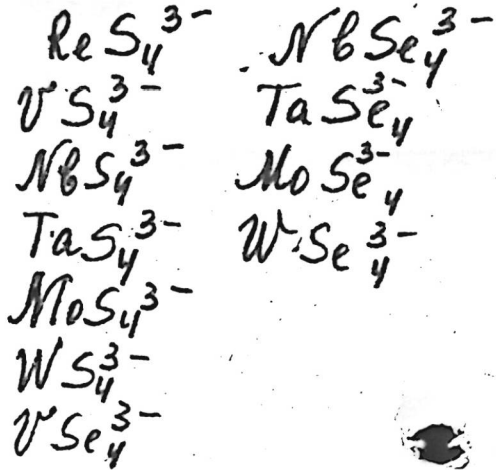 ReS₄³⁻
VS₄³⁻
NbS₄³⁻
TaS₄³⁻
MoS₄³⁻
WS₄³⁻
VSe₄³⁻
NbSe₄³⁻
TaSe₄³⁻
MoSe₄³⁻
WSe₄³⁻